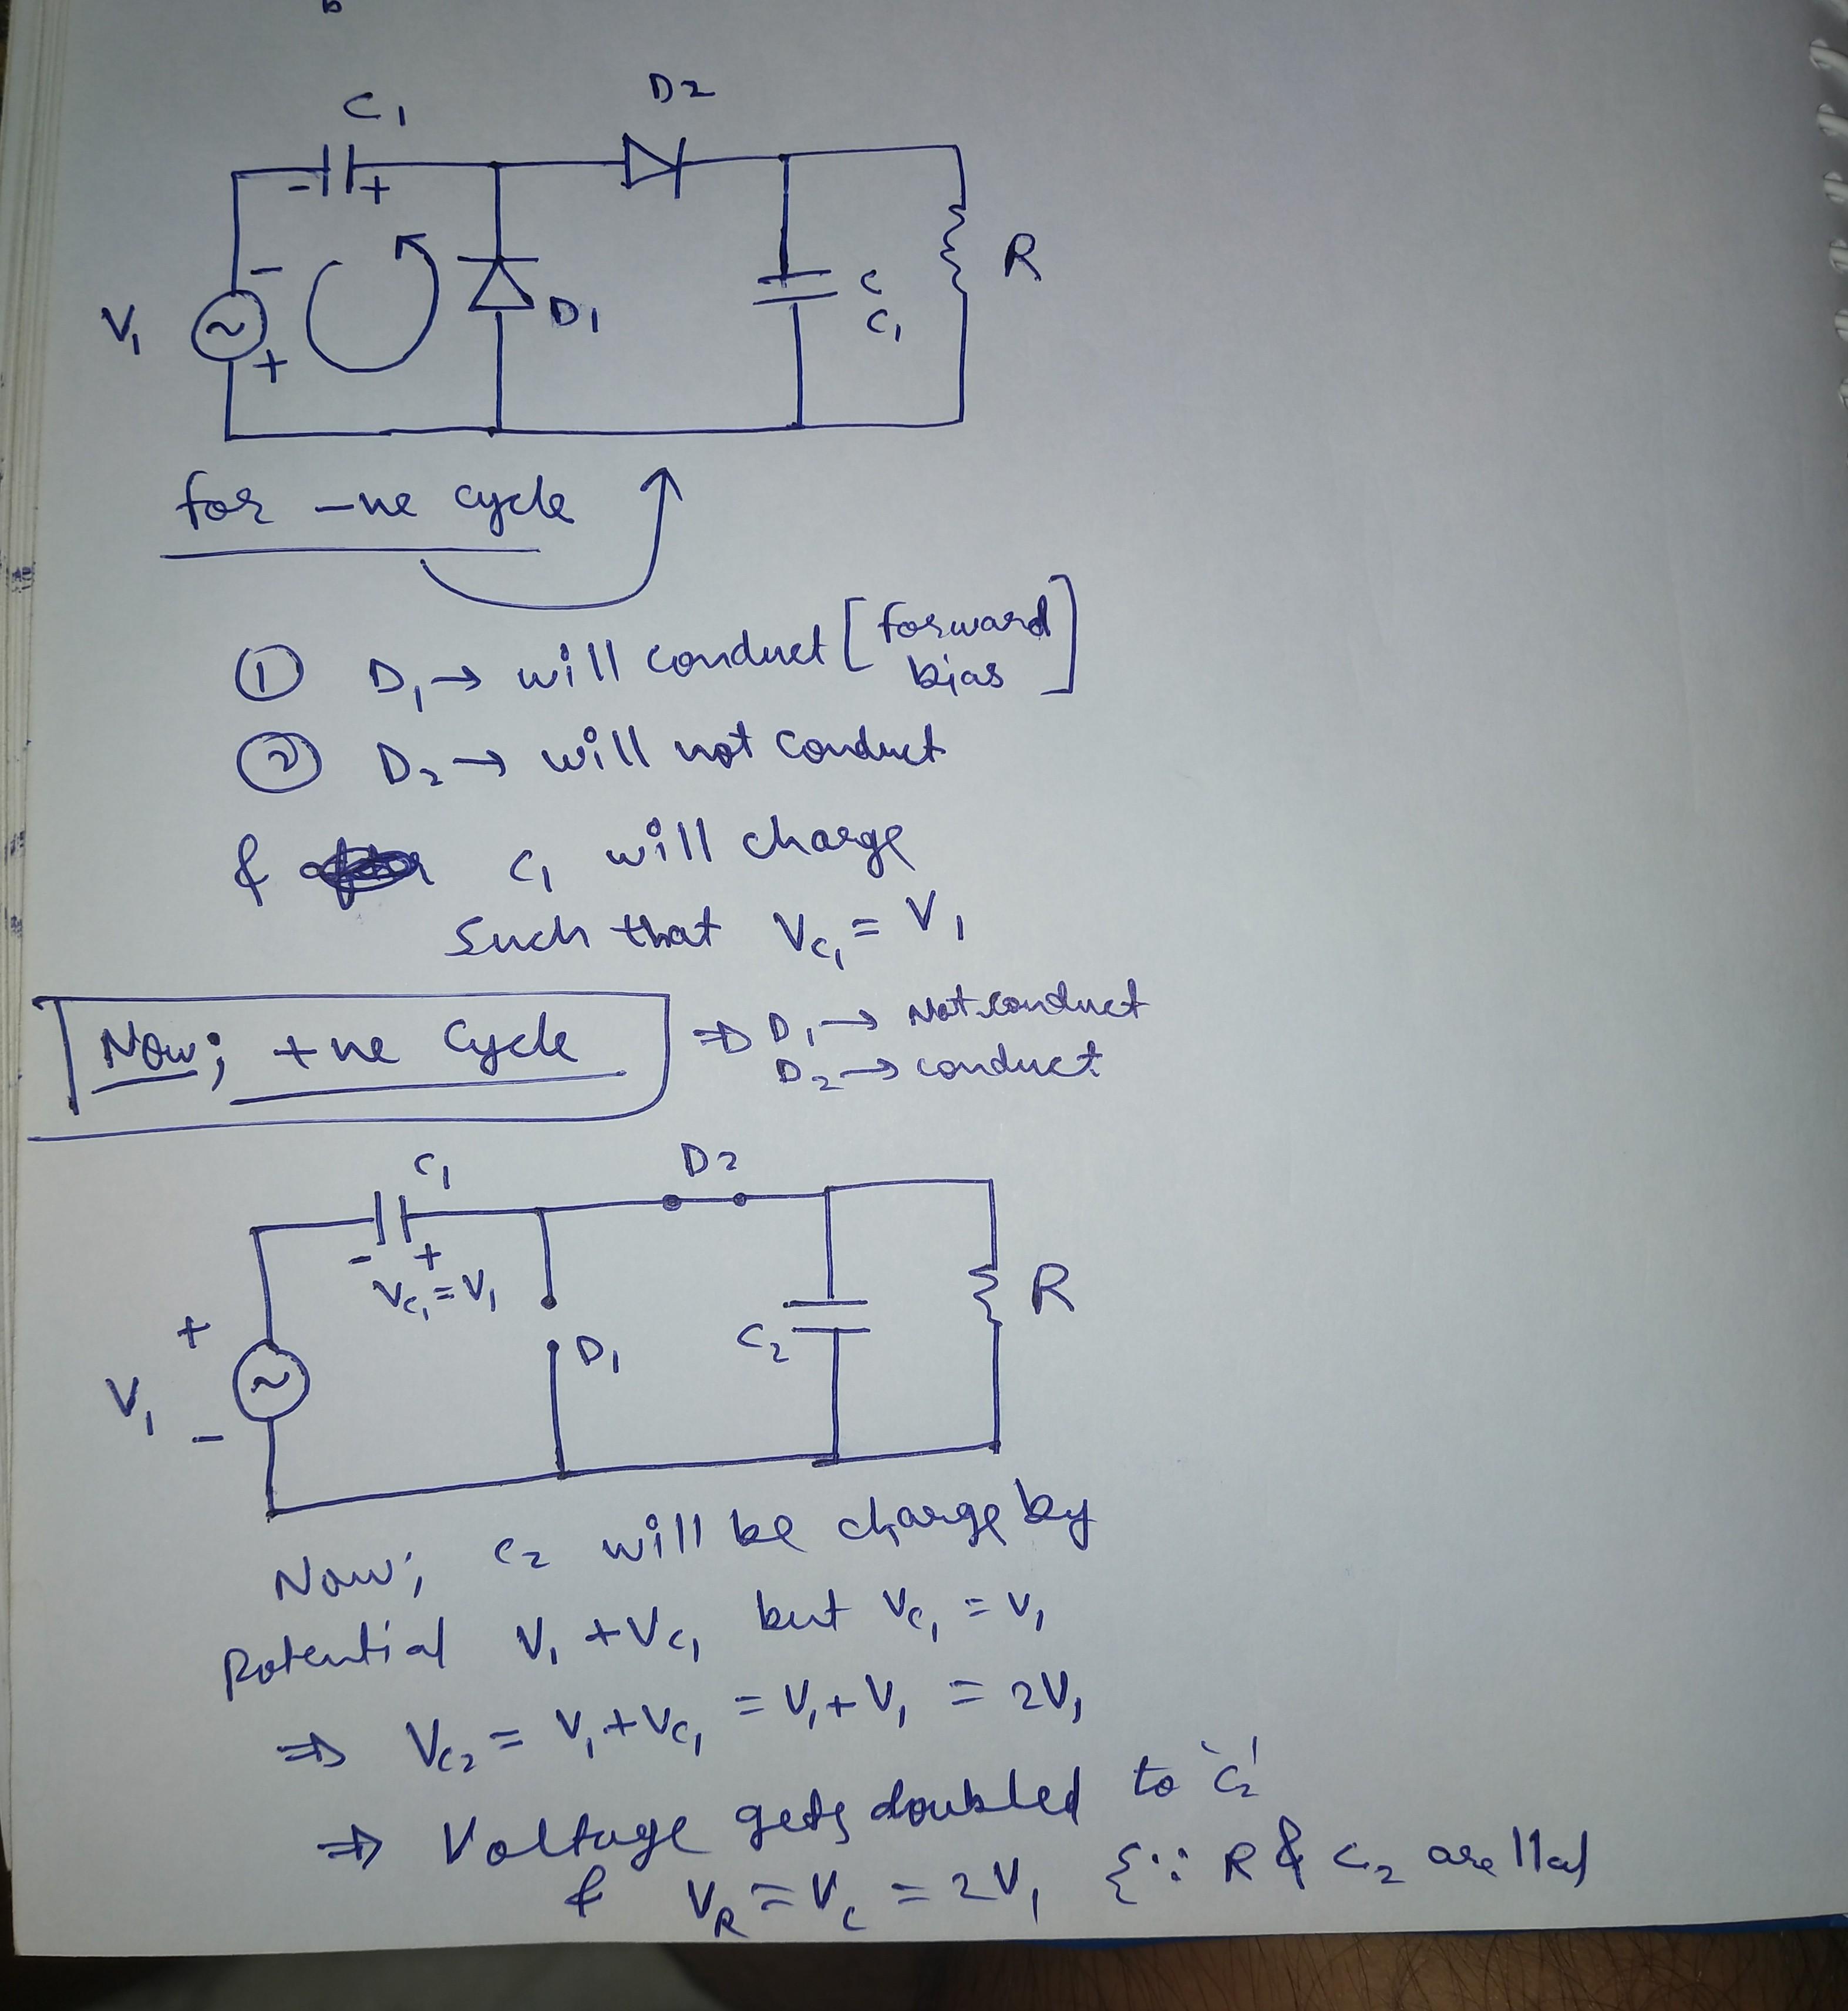 C1
D2
- +
-
V1 ~ D1 C R
+ C1
for -ve cycle
① D1 → will conduct [forward bias]
② D2 → will not conduct
& C1 will charge
Such that Vc1 = V1
Now; +ve Cycle ⇒ D1 → Not conduct
D2 → conduct
C1 D2
- +
Vc1 = V1
+
V1 ~ D1 C2 R
-
Now; C2 will be charge by
Potential V1 + Vc1 but Vc1 = V1
⇒ Vc2 = V1 + Vc1 = V1 + V1 = 2V1
⇒ Voltage gets doubled to 'C2'
& VR = Vc = 2V1 {∵ R & C2 are llal